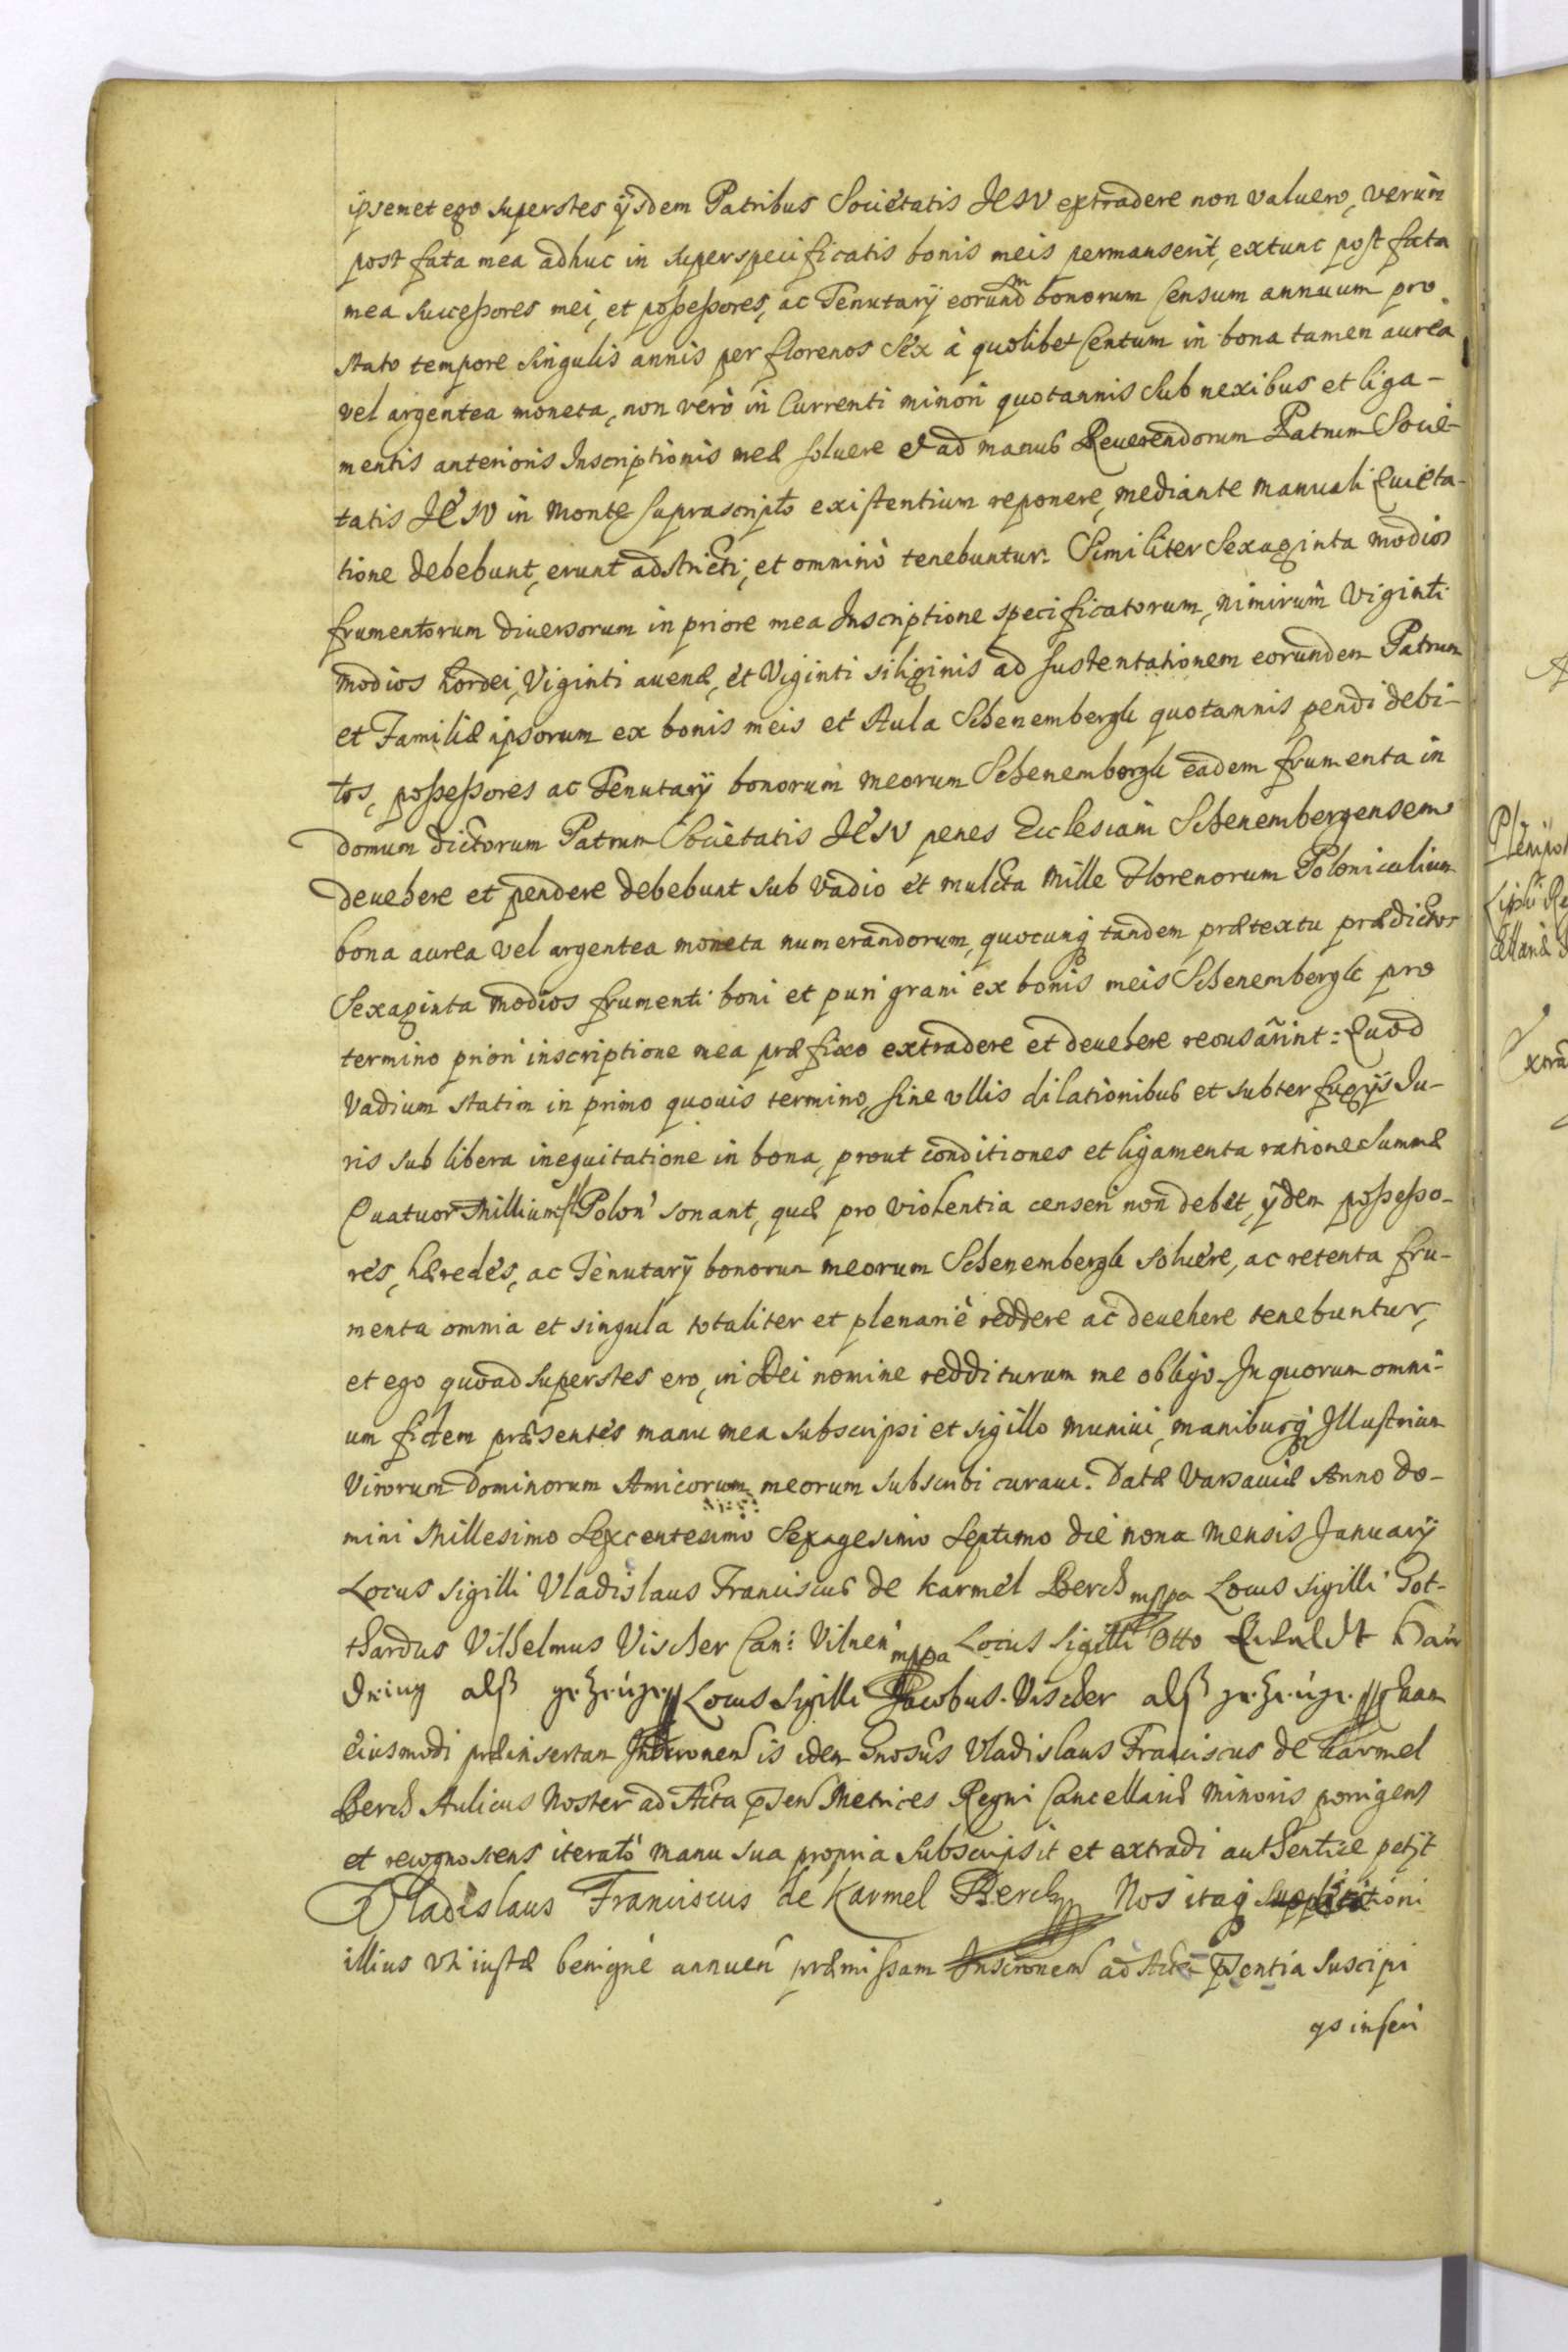 ipsemet ego superstes ijsdem Patribus Societatis JESV extradere non valuero, verum
post fata mea adhuc in superspecificatis bonis meis permanserit, extunc post fata
mea successores mei, et possessores, ac Tenutarÿ eorundm bonorum Censum annuum pro
stato tempore singulis annis per florenos sex à quolibet Centum in bona tamen aurea
vel argentea moneta, non verò in Currenti minori quotannis sub nexibus et liga-
mentis anterioris Inscriptionis meæ soluere et ad manus Reuerendorum Patrum Socie-
tatis JESV in Monte suprascripto existentium reponere, mediante manuali Quieta-
tione debebunt, erunt adstricti, et omninò tenebuntur. Similiter Sexaginta modios
frumentorum diuersorum in priore mea Inscriptione specificatorum, nimirum Viginti
modios hordei, Viginti auenæ, et Viginti siliginis ad sustentationem eorundem Patrum
et Familiæ ipsorum ex bonis meis et Aula Schenembergk quotannis pendi debi-
tos, possessores ac Tenutarÿ bonorum meorum Schenembergk eadem frumenta in
domum dictorum Patrum Societatis JESV penes Ecclesiam Schenembergensem
deuehere et pendere debebunt sub vadio et mulcta Mille Florenorum Polonicalium
bona aurea vel argentea moneta numerandorum, quocunq tandem prætextu prædictos
Sexaginta modios frumenti boni et puri grani ex bonis meis Schenembergk pro
termino priori inscriptione mea præfixo extradere et deuehere recusarint: Quod
Vadium statim in primo quouis termino, sine vllis dilationibus et subterfugÿs Ju-
ris sub libera inequitatione in bona, prout conditiones et ligamenta ratione Summæ
Quatuor Millium fl Polon' sonant, quæ pro violentia censeri non debet, ÿdem possesso-
res, hæredes, ac Tenutarÿ bonorum meorum Schenembergk soluere, ac retenta fru-
menta omnia et singula totaliter et plenariè reddere ac deuehere tenebuntur,
et ego quoad superstes ero, in Dei nomine redditurum me obligo. In quorum omni-
um fidem præsentes manu mea subscripsi et sigillo muniui, manibusq Illustrium
Virorum Dominorum Amicorum meorum subscribi curaui. Datæ Varsauiæ Anno Do-
mini Millesimo Sexcentesimo Sexagesimo Septimo die nona Mensis Januarÿ
Locus Sigilli Vladislaus Franciscus de Karmel Berch mppa Locus Sigilli Got-
thardus Vilhelmus Vischer Can: Vilnen' mppa Locus Sigilli Otto
als gezeuge// Locus Sigilli Jacobus Vischer alß gezeuge //
eiusmodi præinsertam is idem Gnosus Vladislaus Franciscus de Karmel
Berch Aulicus Noster ad Acta psen Metrices Regni Cancellariæ Minoris porrigens
et recognoscens iteratò manu sua propria subscripsit et extradi authentice petijt
Vladislaus Franciscus de Karmel Berch Nos itaq Supplicationi
illius vti iustæ benignè annuen præmissam Inscronem ad Acta psentia Suscipi
gs inseri